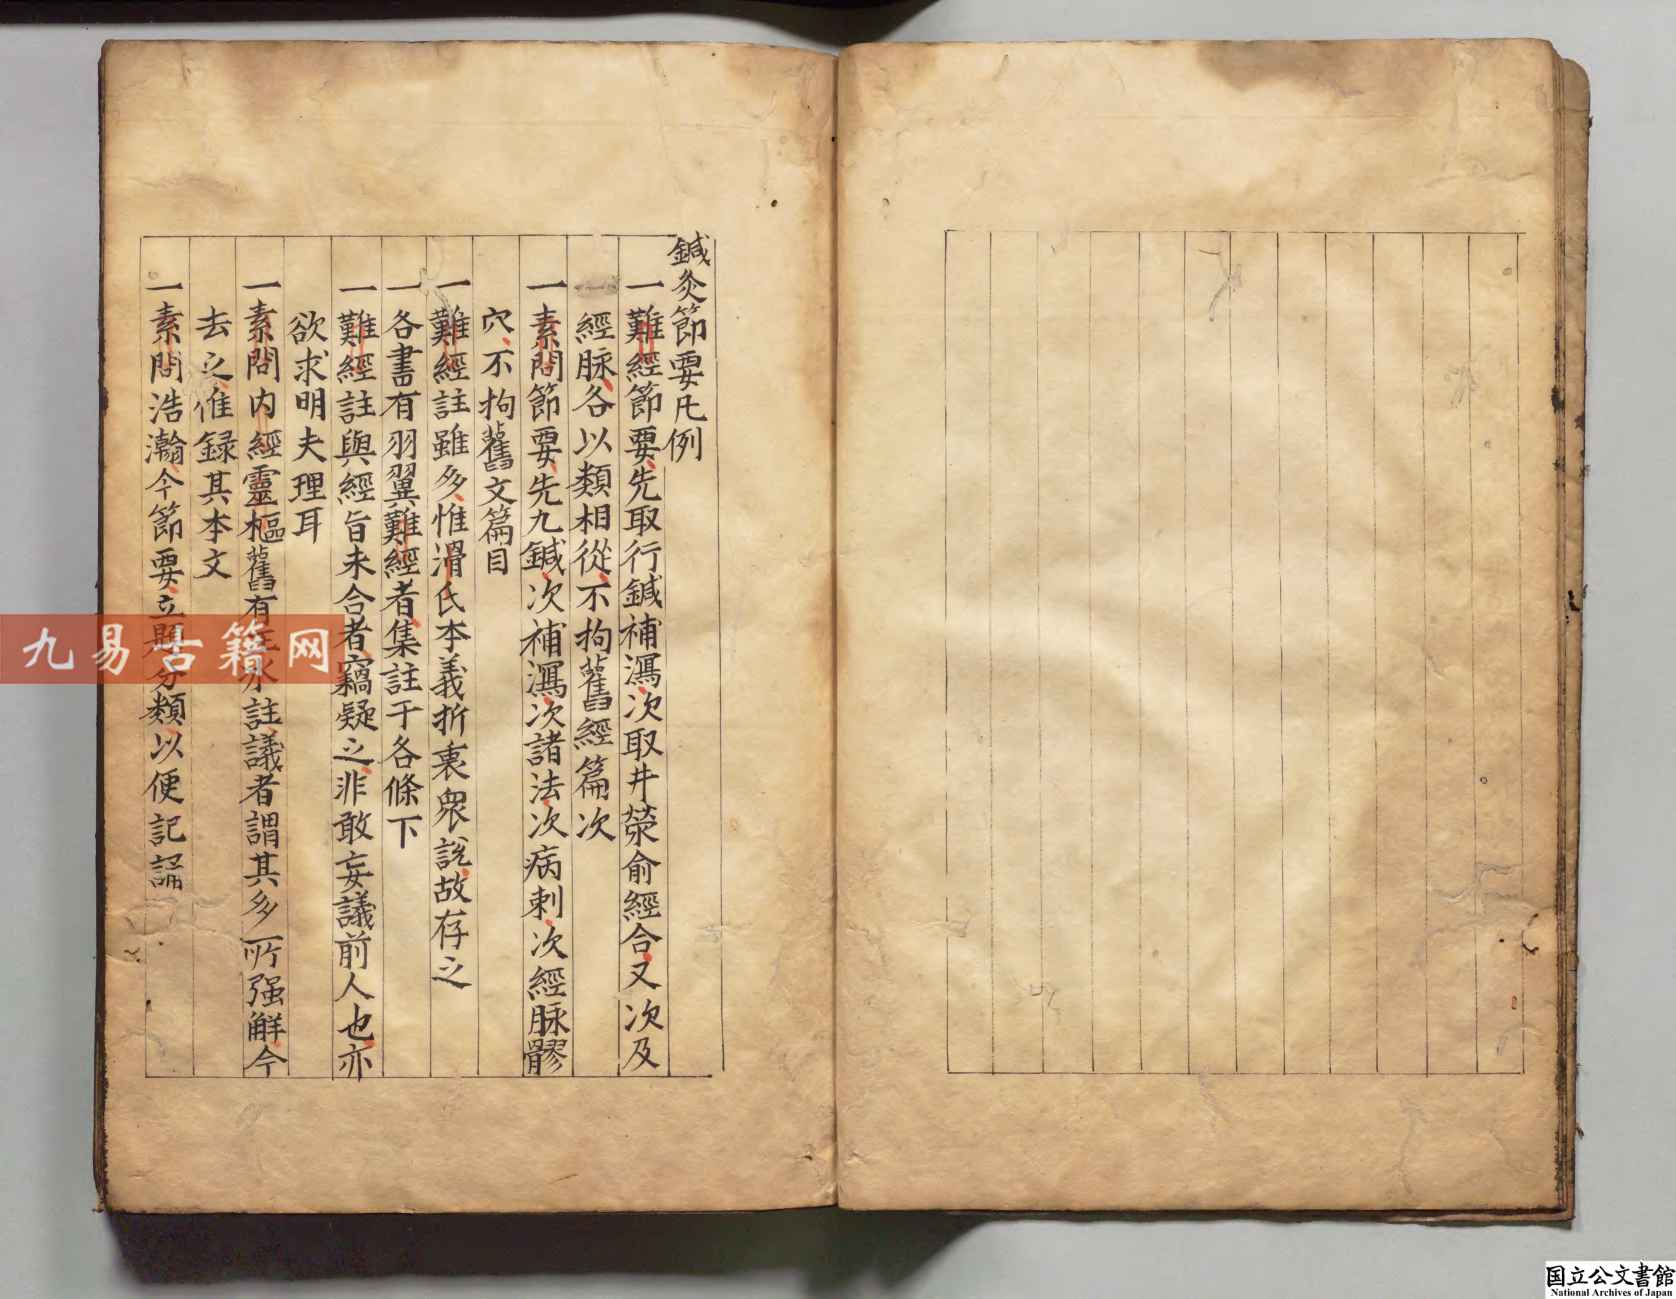 鍼灸節要凡例
一難經節要先取行鍼補瀉次取井滎俞經合又次及
經脉各以類相從不拘舊經篇次
一素問節要先九鍼次補瀉次諸法次病刺次經脉髎
穴不拘舊文篇目
一難經註雖多惟滑氏本義折衷衆說故存之
一各書有羽翼難經者集註于各條下
一難經註與經旨未合者竊疑之非敢妄議前人也亦
欲求明夫理耳
一素問內經靈樞舊有王氷註議者謂其多所强解今
去之惟録其本文
一素問浩瀚今節要立題分類以便記誦
九易古籍网
国立公文書館
National Archives of Japan